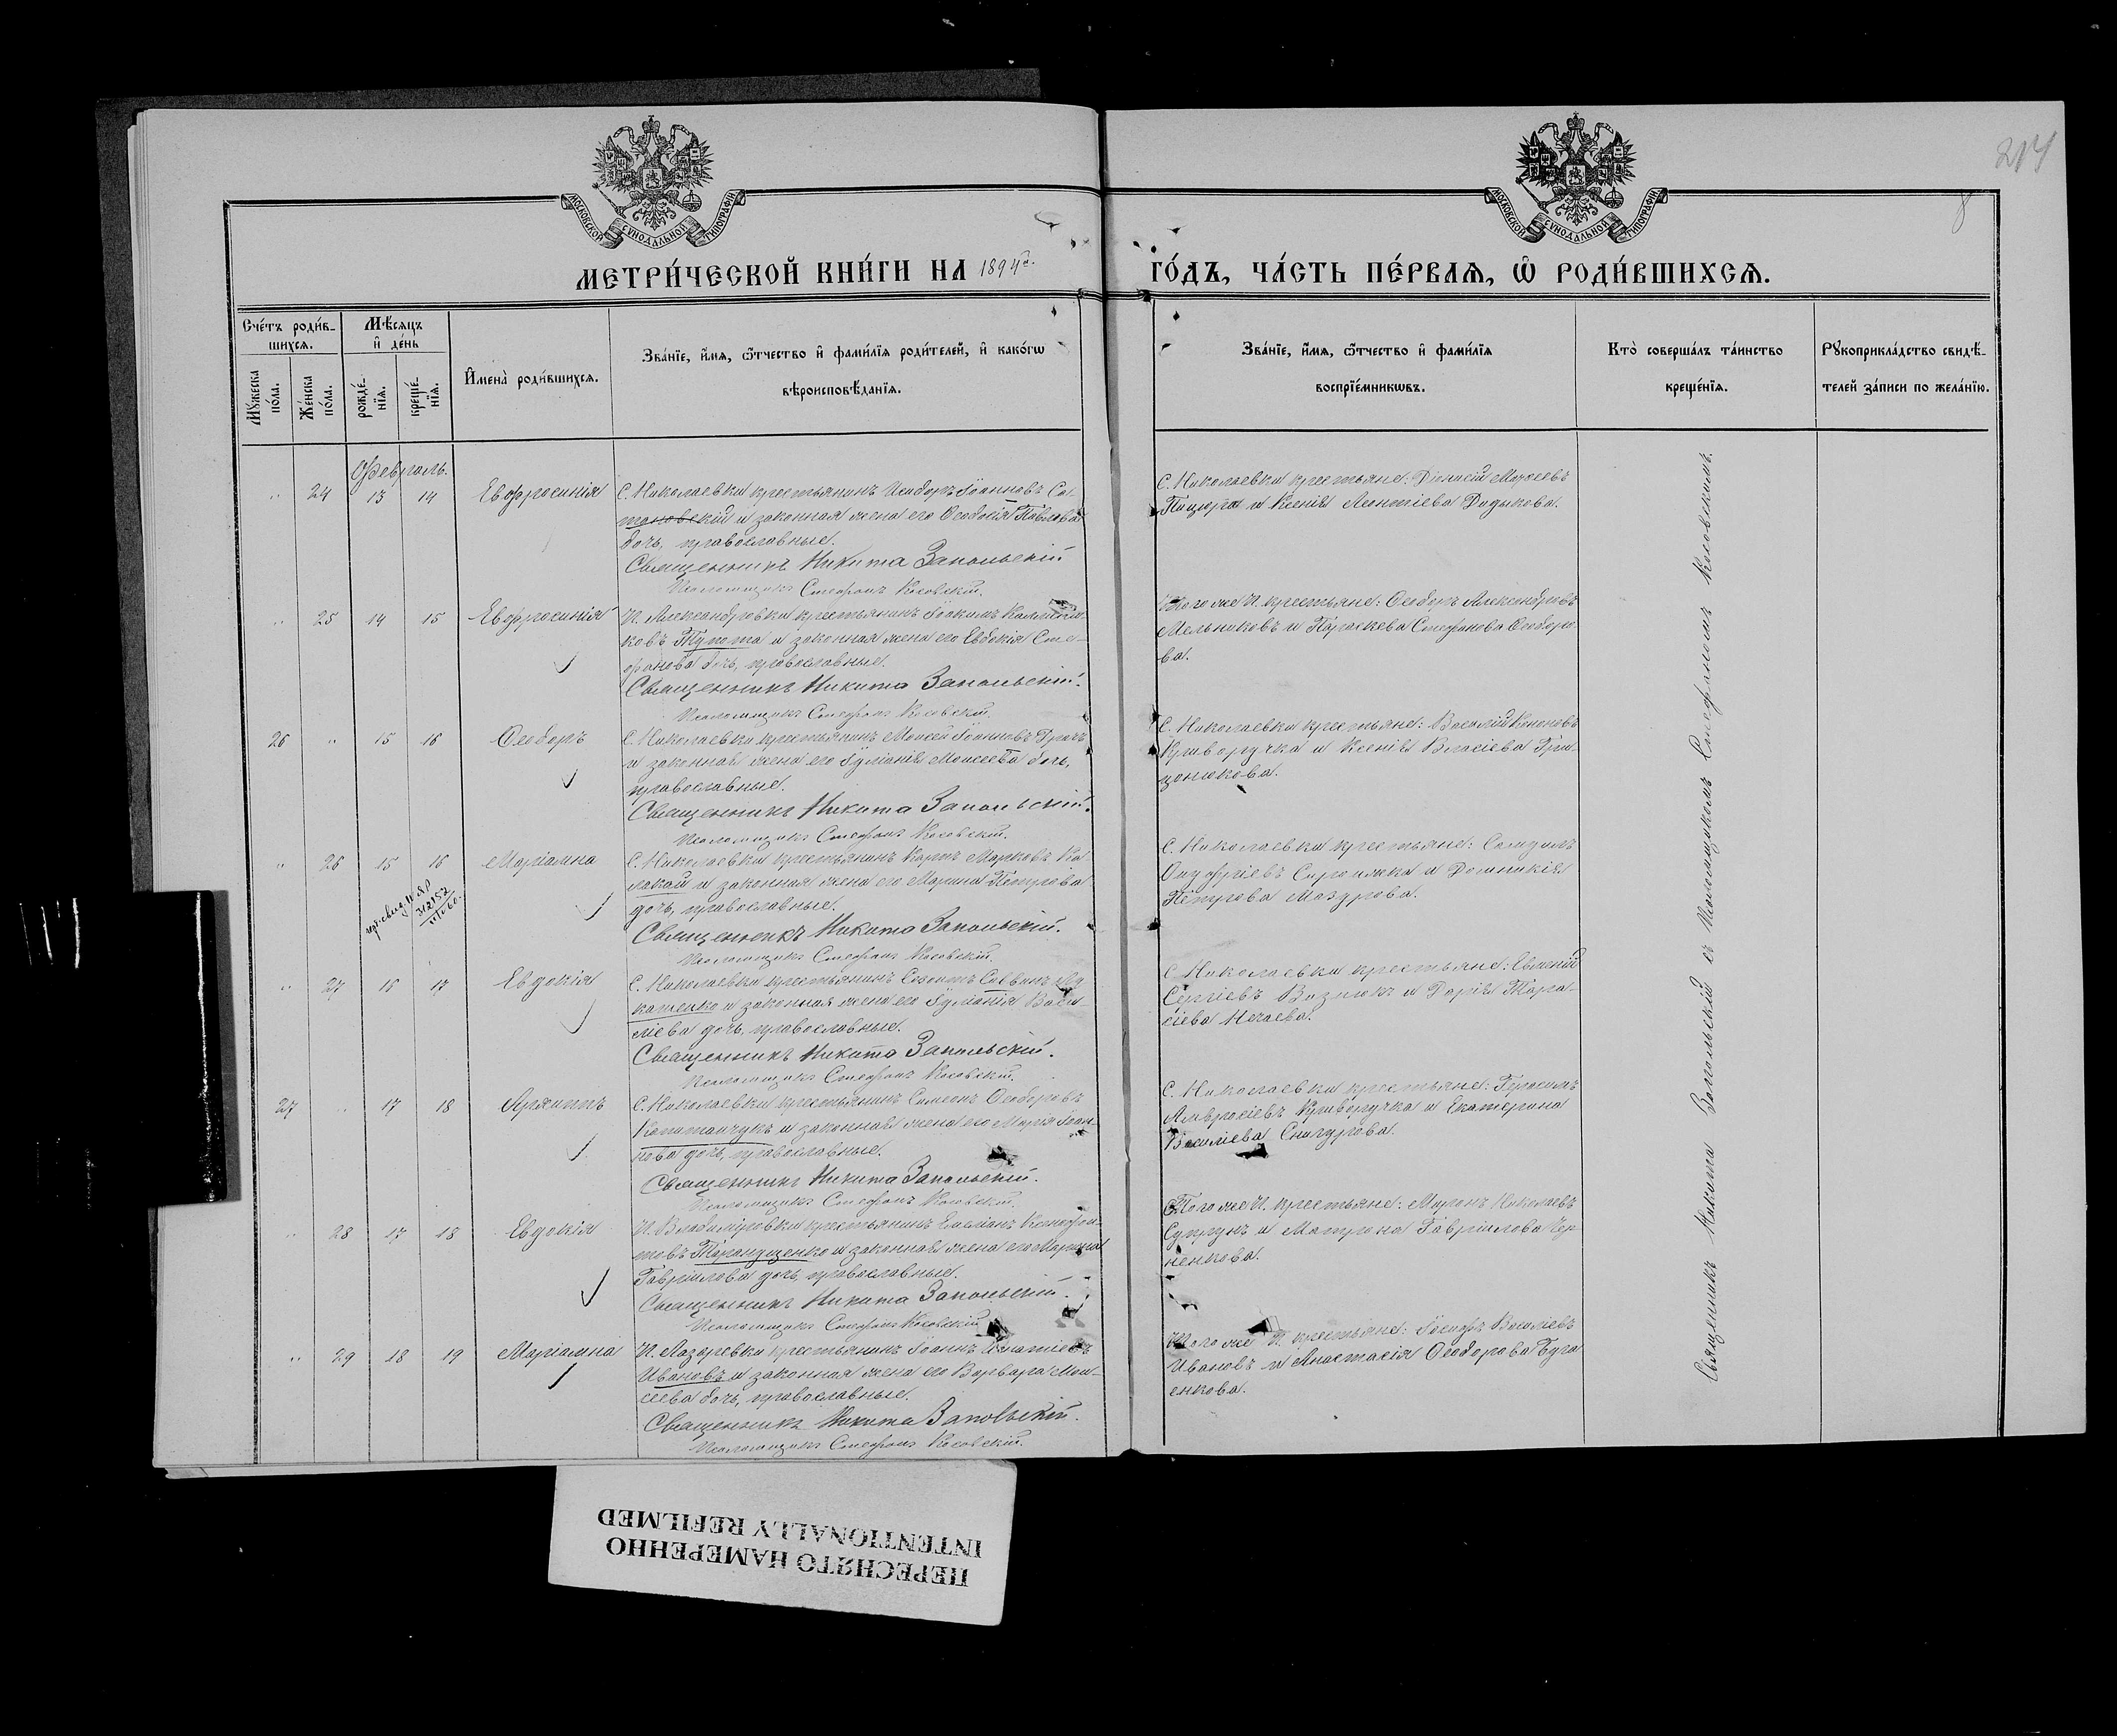 214
8
МОСКОВСКОЙ СѴНОДАЛЬНОЙ ТИПОГРАФІИ
МОСКОВСКОЙ СѴНОДАЛЬНОЙ ТИПОГРАФІИ
МЕТРИ́ЧЕСКОЙ КНИ́ГИ НА 1894й. ГО́ДЪ, ЧА́СТЬ ПЕ́РВАѦ, Ѽ РОДИ́ВШИХСѦ.
Сче́тъ роди́в-
шихсѧ.
Мꙋ́жеска по́ла.
Же́нска по́ла.
Мѣ́сѧцъ
и҆ де́нь
рожде́-
нїѧ.
креще́-
нїѧ.
И҆мена̀ роди́вшихсѧ.
Зва́нїе, и҆́мѧ, ѻ҆́тчество и҆ фами́лїѧ роди́телей, и҆ како́гѡ
вѣроисповѣ́данїѧ.
Зва́нїе, и҆́мѧ, ѻ҆́тчество и҆ фами́лїѧ
воспрїе́мникѡвъ.
Кто̀ соверша́лъ та́инство
креще́нїѧ.
Рꙋкоприкла́дство свидѣ́-
телей за́писи по жела́нїю.
Февраль.
" 24 13 14 Евфросинія
С. Николаевки крестьянинъ Исидоръ Іоанновъ Са-
тановскій и законная жена его Ѳеодосія Павлова
дочь, православные.
Священникъ Никита Запольскій
Псаломщикъ Стефанъ Косовскій.
С. Николаевки крестьяне: Діонисій Моѵсеевъ
Пацюра и Ксенія Леонтіева Дидыкова.
" 25 14 15 Евфросинія
П. Александровки крестьянинъ Іоакимъ
ковъ Тупота и законная жена его Евдокія Сте-
фанова дочь, православные.
Священникъ Никита Запольскій.
Псаломщикъ Стефанъ Косовскій.
Того же П. крестьяне: Ѳеодоръ Александровъ
Мельниковъ и Параскева Стефанова Ѳеодоро-
ва.
26 " 15 16 Ѳеодоръ
С. Николаевки крестьянинъ Моисей Іоанновъ Грачъ
и законная жена его Іуліанія Моисеева дочь,
православные.
Священникъ Никита Запольскій.
Псаломщикъ Стефанъ Косовскій.
С. Николаевки крестьяне: Василій Кононовъ
Криворучка и Ксенія Власіева Гри-
цонюкова.
" 26 15 16 Маріамна
312152
С. Николаевки крестьянинъ Карпъ Марковъ Ко-
лакай и законная жена его Марина Петрова
дочь, православные.
Священникъ Никита Запольскій.
Псаломщикъ Стефанъ Косовскій.
С. Николаевки крестьяне: Самуилъ
Онуфріевъ Сиротюжка и Домникія
Петрова Маздрова.
" 27 16 17 Евдокія
С. Николаевки крестьянинъ Созонтъ Саввинъ Лу-
кашенко и законная жена его Іуліанія Васи-
ліева дочь, православные.
Священникъ Никита Запольскій.
Псаломщикъ Стефанъ Косовскій.
С. Николаевки крестьяне: Евменій
Сергіевъ Вознюкъ и Дарія Тара-
сіева Нечаева.
27 " 17 18 Архиппъ
С. Николаевки крестьянинъ Симеонъ Ѳеодоровъ
Капитанчукъ и законная жена его Марія Іоан-
нова дочь, православные.
Священникъ Никита Запольскій.
Псаломщикъ Стефанъ Косовскій.
С. Николаевки крестьяне: Герасимъ
Амвросіевъ Криворучка и Екатерина
Василіева Снигурова.
" 28 17 18 Евдокія
П. Владиміровки крестьянинъ Емиліанъ Ксенофон-
товъ Таранущенко и законная жена его Марина
Гавріилова дочь, православные.
Священникъ Никита Запольскій.
Псаломщикъ Стефанъ Косовскій.
Того же П. крестьяне: Миронъ Николаевъ
Супрунъ и Матрона Гавріилова Чер-
ненкова.
" 29 18 19 Маріамна
П. Лазаревки крестьянинъ Іоаннъ Игнатіевъ
Ивановъ и законная жена его Варвара Мои-
сеева дочь, православные.
Священникъ Никита Запольскій.
Псаломщикъ Стефанъ Косовскій.
Того же П. крестьяне: Іосифъ Василіевъ
Ивановъ и Анастасія Ѳеодорова Буга-
енкова.
Священникъ Никита Запольскій съ Псаломщикомъ Стефаномъ Косовскимъ.
ПЕРЕСНЯТО НАМЕРЕННО
INTENTIONALLY REFILMED